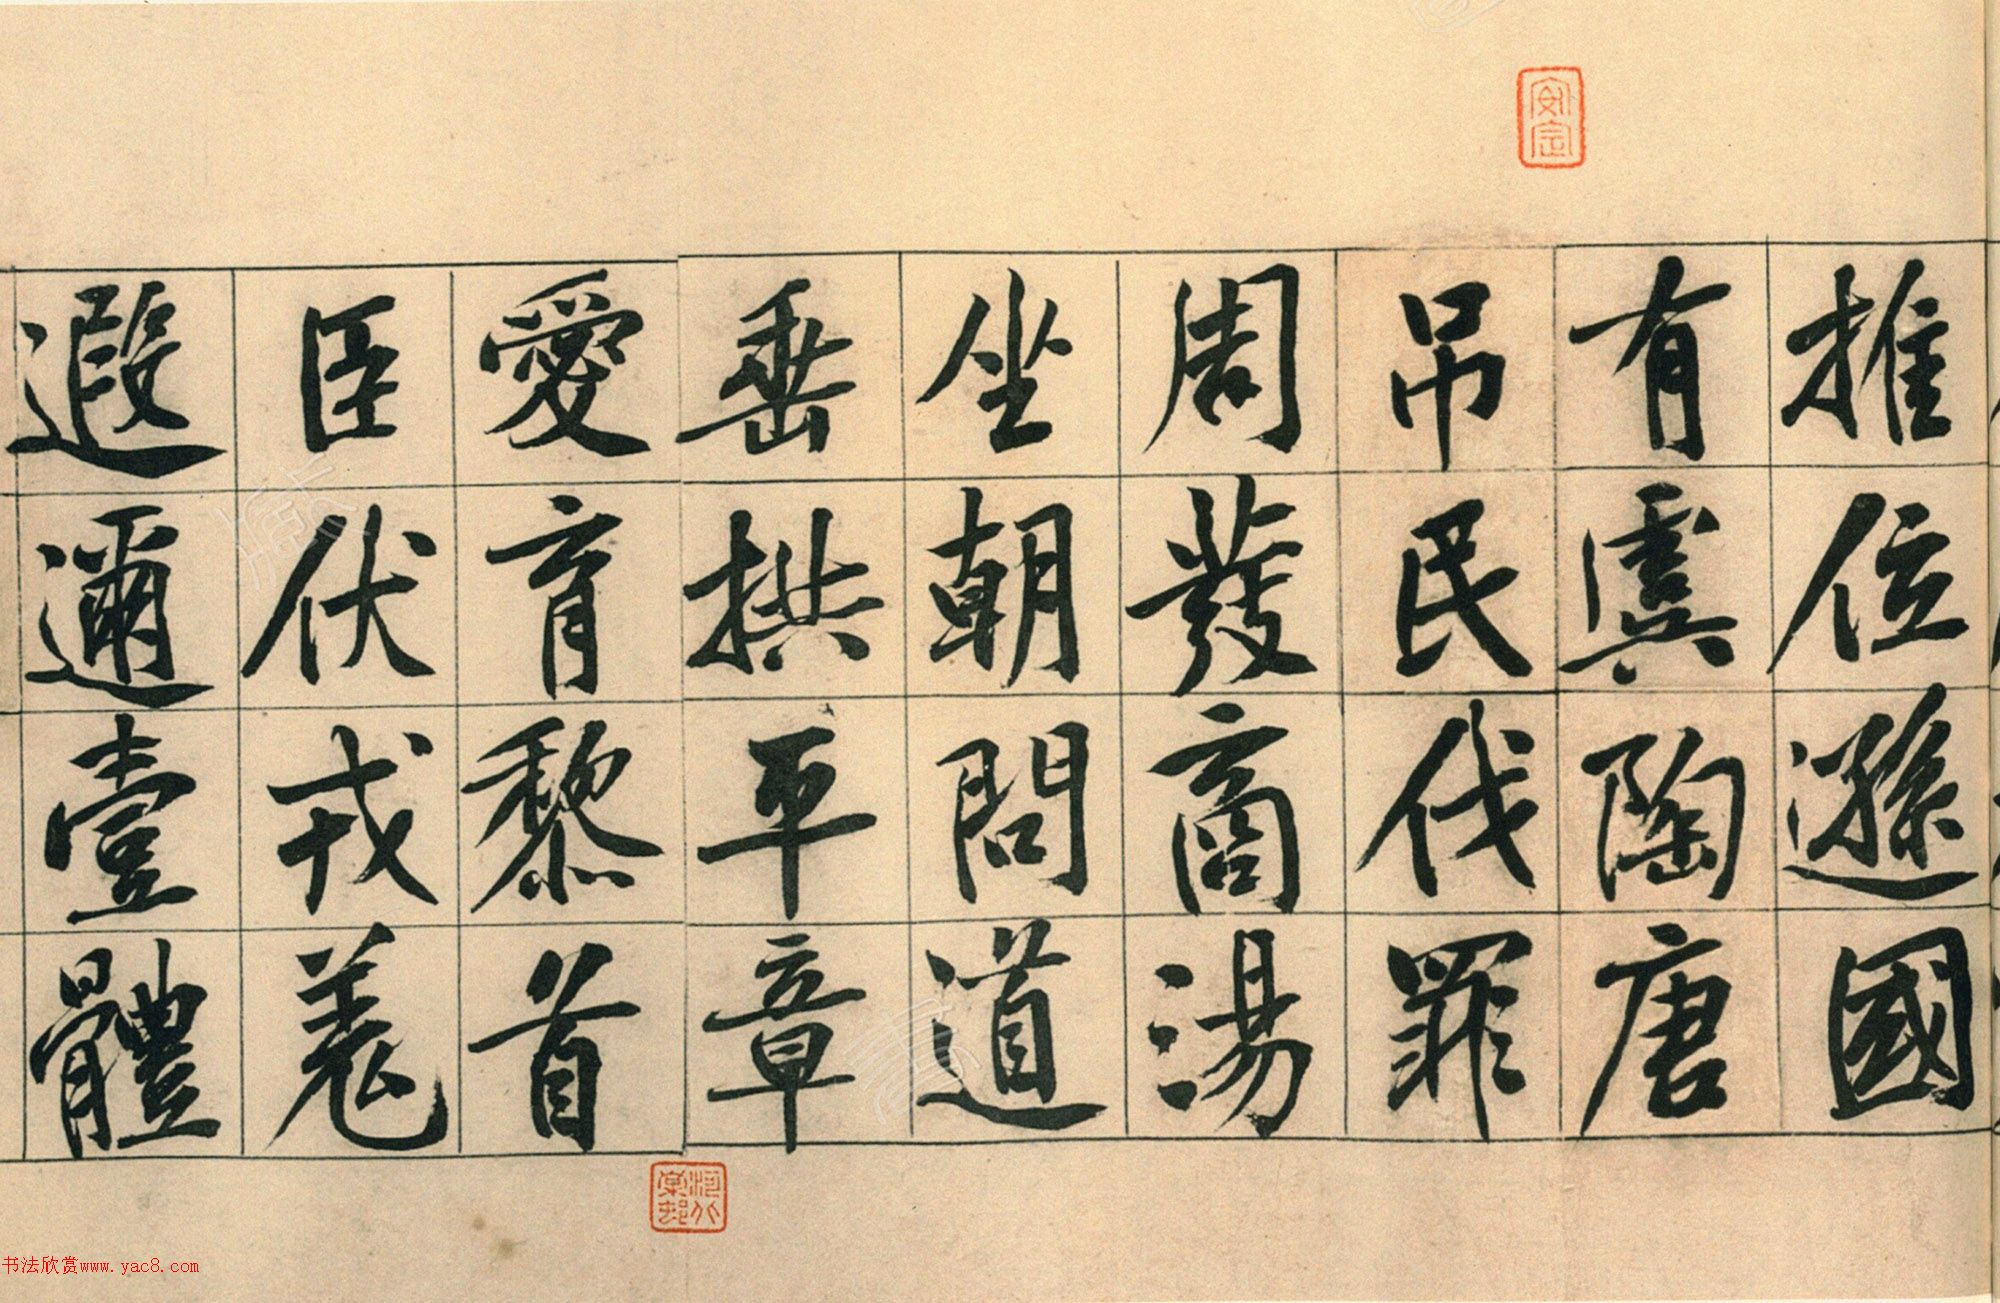 推位遜國
有虞陶唐
吊民伐罪
周發商湯
坐朝問道
垂拱平章
愛育黎首
臣伏戎羌
遐邇壹體
安定
书法欣赏www.yac8.com